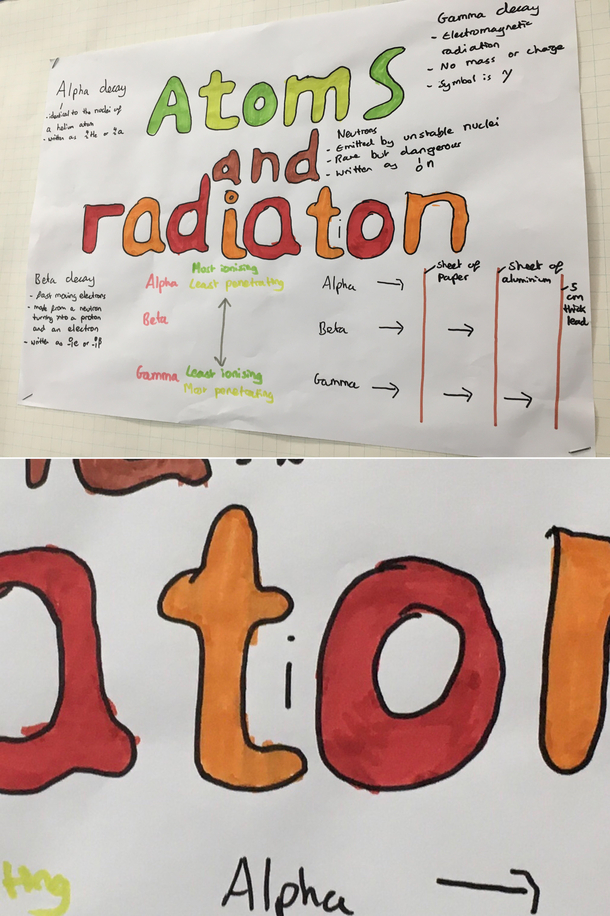 Atoms
and
radiation
Alpha decay
- identical to the nuclei of
a helium atom
- written as ⁴₂He or ⁴₂α
Gamma decay
- Electromagnetic
radiation
- No mass or charge
- Symbol is γ
Neutrons
- Emitted by unstable nuclei
- Rare but dangerous
- Written as ¹₀n
Beta decay
- fast moving electrons
- made from a neutron
turning into a proton
and an electron
- written as ⁰₋₁e or ⁰₋₁β
Most ionising
Alpha Least penetrating
Beta
Gamma Least ionising
Most penetrating
Alpha →
Beta → →
Gamma → → →
Sheet of
paper
Sheet of
aluminium
5
cm
thick
lead
ation
ting
Alpha →